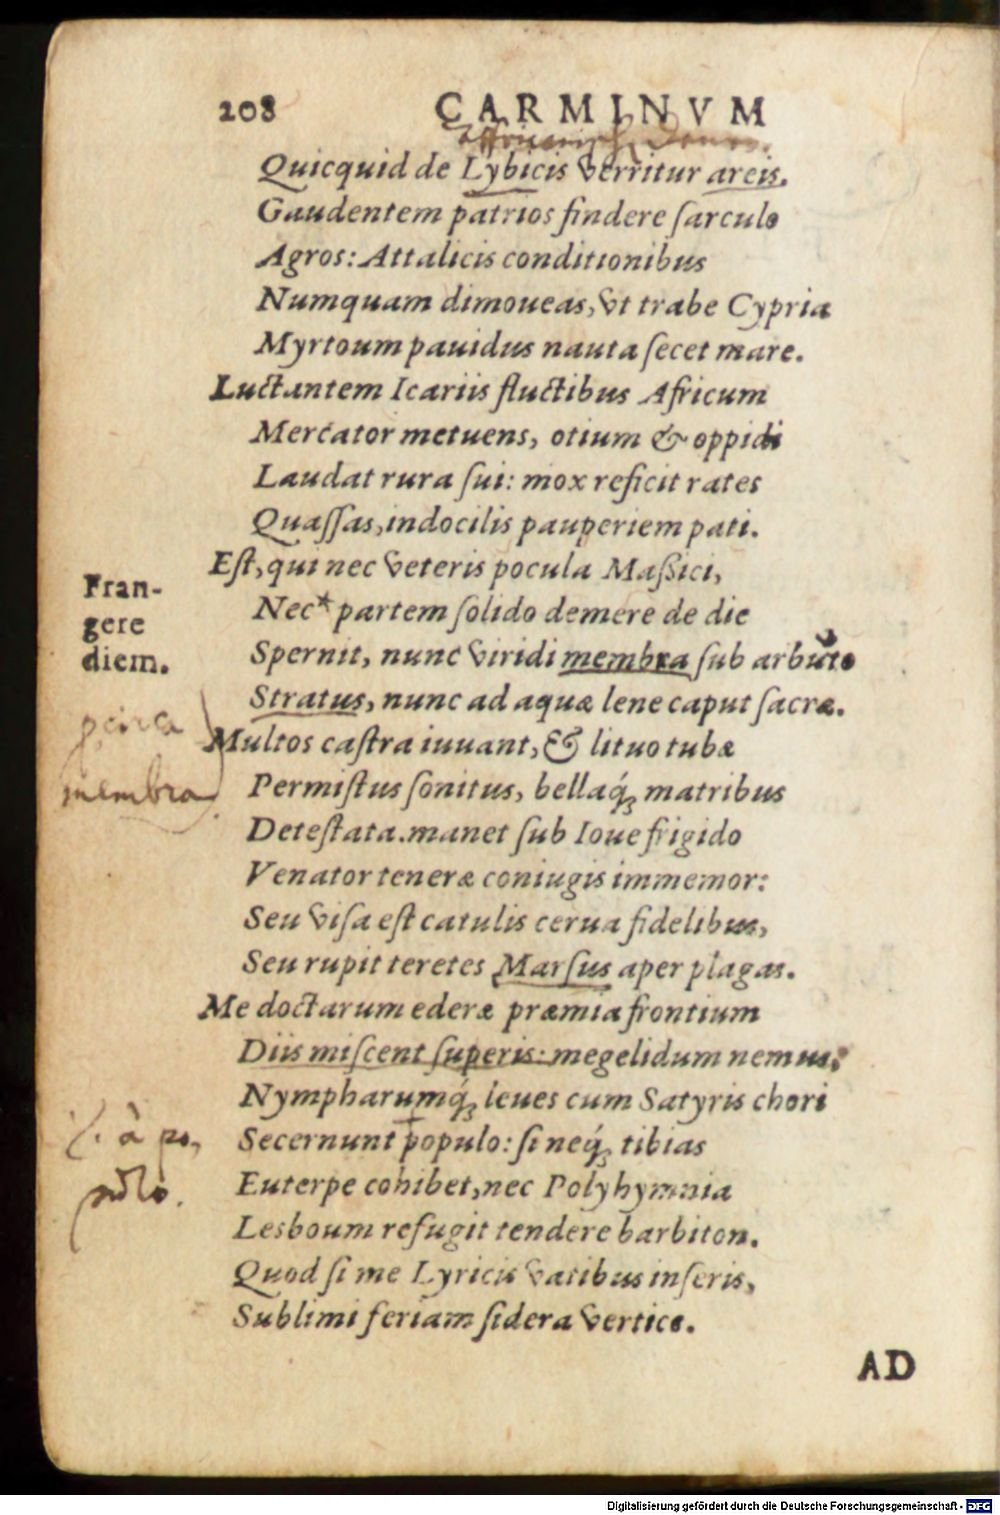 208 CARMINVM
Quicquid de Lybicis verritur areis.
Gaudentem patrios findere ſarculo
Agros: Attalicis conditionibus
Numquam dimoueas, vt trabe Cypria
Myrtoum pauidus nauta ſecet mare.
Luctantem Icariis fluctibus Africum
Mercator metuens, otium & oppidi
Laudat rura ſui: mox reficit rates
Quaſſas, indocilis pauperiem pati.
Eſt, qui nec veteris pocula Maſsici,
Fran-
gere
diem.
Nec* partem ſolido demere de die
Spernit, nunc viridi membra ſub arbuto
Stratus, nunc ad aquæ lene caput ſacræ.
Multos caſtra iuuant, & lituo tubæ
membra
Permiſtus ſonitus, bellaq́; matribus
Deteſtata. manet ſub Ioue frigido
Venator teneræ coniugis immemor:
Seu viſa eſt catulis cerua fidelibus,
Seu rupit teretes Marſus aper plagas.
Me doctarum ederæ præmia frontium
Diis miſcent ſuperis: me gelidum nemus,
Nympharumq́; leues cum Satyris chori
à po,
Secernunt populo: ſi neq́; tibias
Euterpe cohibet, nec Polyhymnia
Lesboum refugit tendere barbiton.
Quod ſi me Lyricis vatibus inſeris,
Sublimi feriam ſidera vertice.
AD
Digitalisierung gefördert durch die Deutsche Forschungsgemeinschaft - DFG